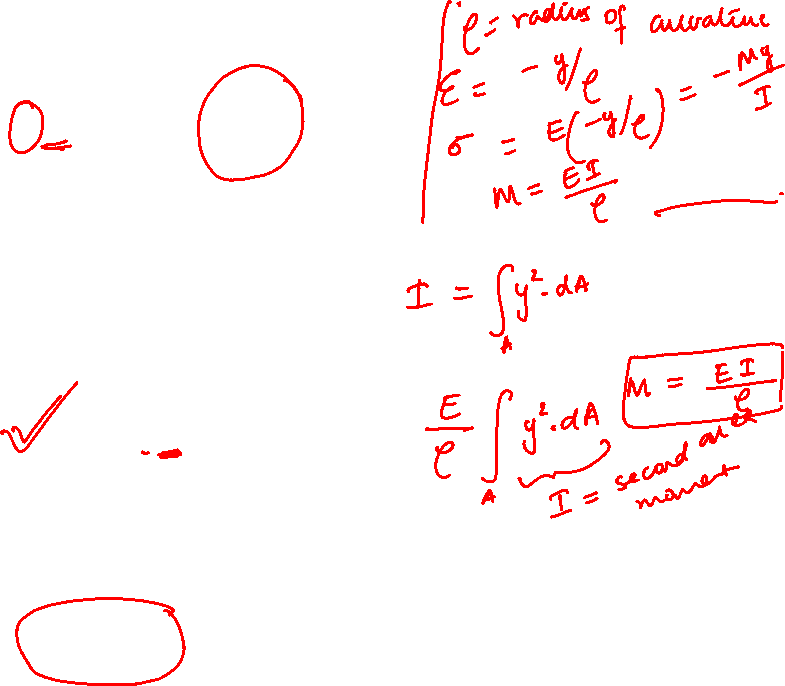 ρ = radius of curvature
ε = -y/ρ
σ = E(-y/ρ) = -My/I
M = EI/ρ
I = ∫_A y²·dA
E/ρ ∫_A y²·dA
M = EI/ρ
I = second area
moment